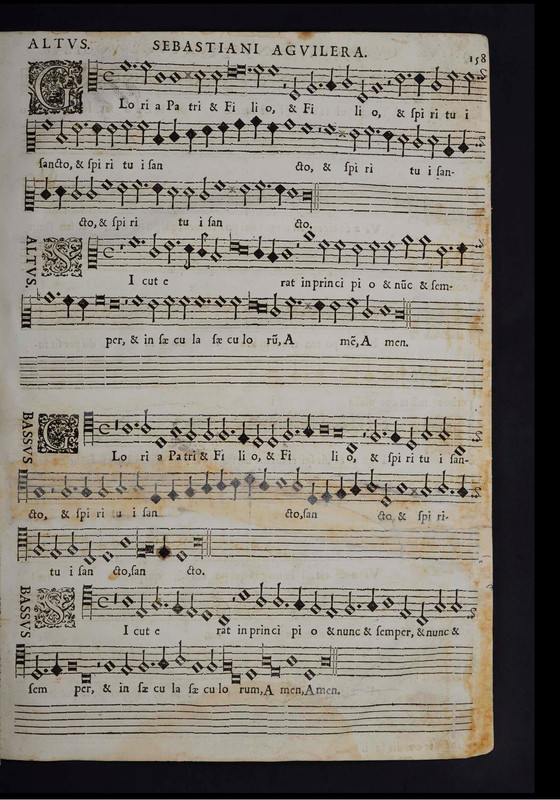 ALTVS. SEBASTIANI AGVILERA. 158
G Lo ri a Pa tri & Fi li o, & Fi li o, & ſpi ri tu i
ſancto, & ſpi ri tu i ſan cto, & ſpi ri tu i ſan-
cto, & ſpi ri tu i ſan cto.
ALTVS. S I cut e rat in prin ci pi o & nũc & ſem-
per, & in ſæ cu la ſæ cu lo rũ, A mẽ, A men.
BASSVS G Lo ri a Pa tri & Fi li o, & Fi li o, & ſpi ri tu i ſan-
cto, & ſpi ri tu i ſan cto, ſan cto & ſpi ri-
tu i ſan cto, ſan cto.
BASSVS S I cut e rat in prin ci pi o & nunc & ſemper, & nunc &
ſem per, & in ſæ cu la ſæ cu lo rum, A men, A men.